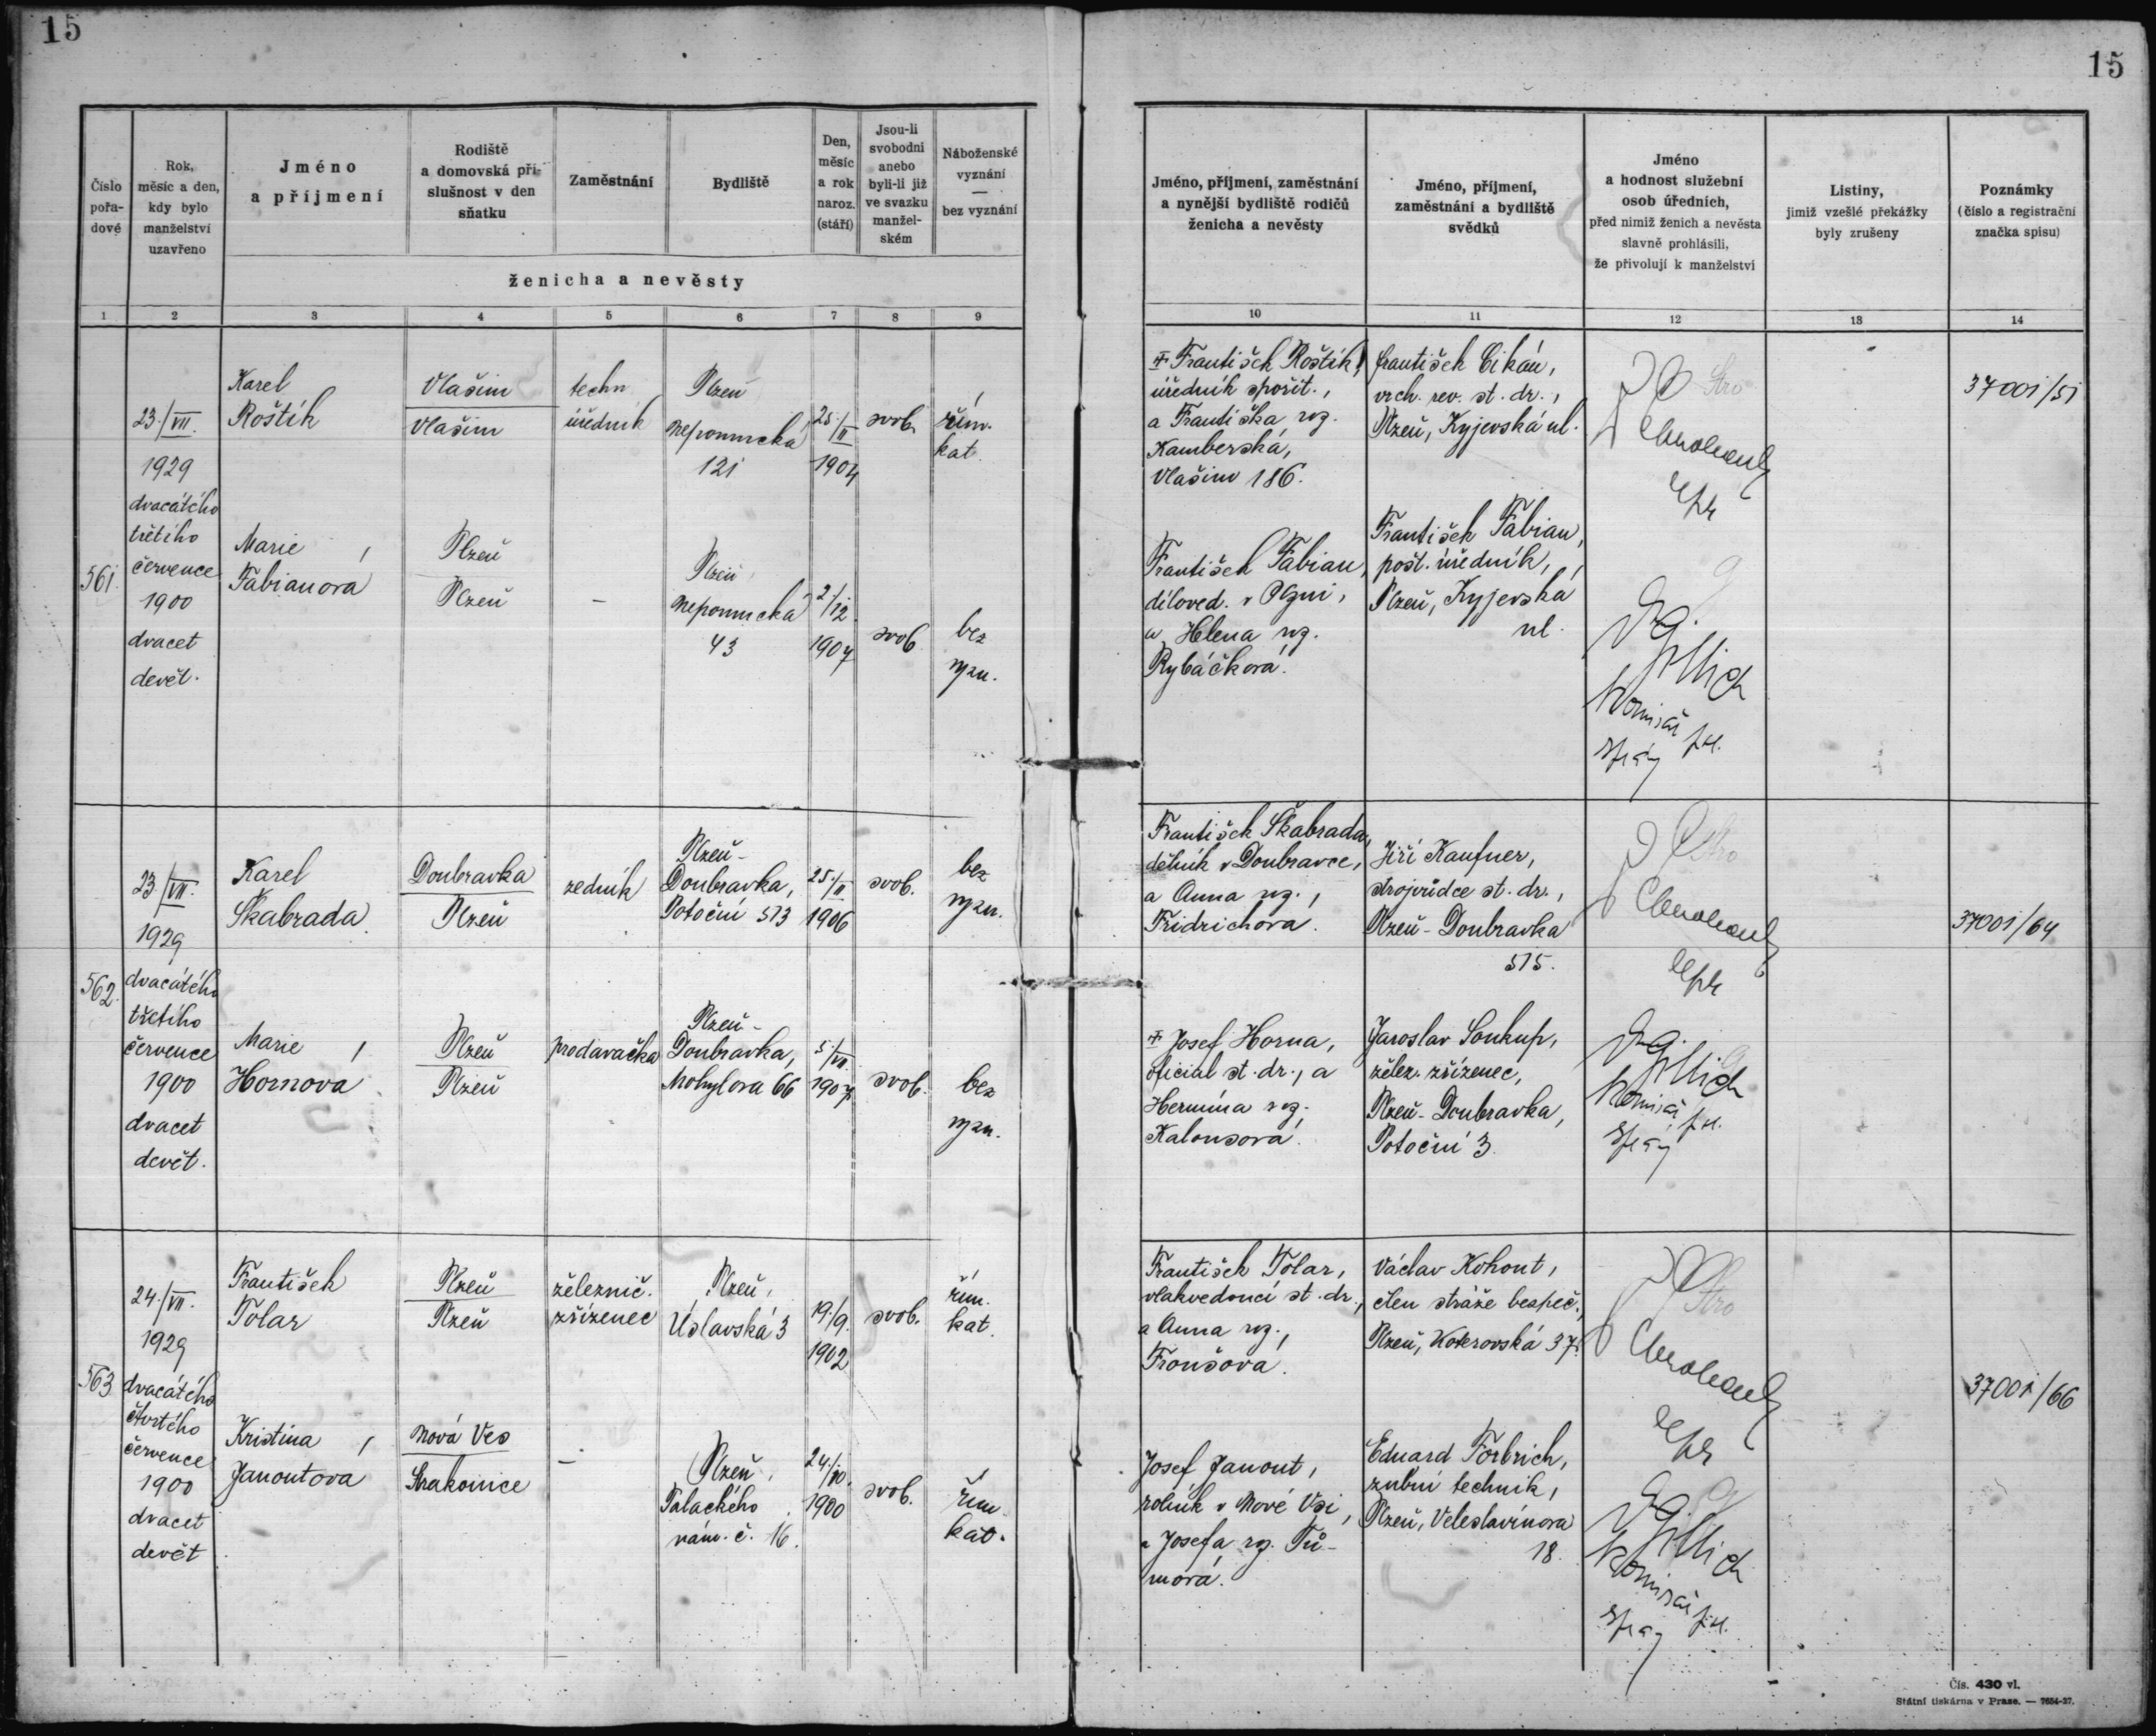 15
15
Číslo pořadové
Rok, měsíc a den, kdy bylo manželství uzavřeno
Jméno a příjmení
Rodiště a domovská příslušnost v den sňatku
Zaměstnání
Bydliště
Den, měsíc a rok naroz. (stáří)
Jsou-li svobodni anebo byli-li již ve svazku manželském
Náboženské vyznání — bez vyznání
ženicha a nevěsty
Jméno, příjmení, zaměstnání a nynější bydliště rodičů ženicha a nevěsty
Jméno, příjmení, zaměstnání a bydliště svědků
Jméno a hodnost služební osob úředních, před nimiž ženich a nevěsta slavně prohlásili, že přivolují k manželství
Listiny, jimiž vzešlé překážky byly zrušeny
Poznámky (číslo a registrační značka spisu)
1 2 3 4 5 6 7 8 9 10 11 12 13 14
561.
23./VII.
1929
dvacátého
třetího
července
1900
dvacet
devět.
Karel
Roštík
Vlašim
Vlašim
techn.
úředník
Plzeň
Nepomucká
121
25./II
1904
svob.
řím.
kat.
František Roštík,
úředník spořit.,
a Františka roz.
Kamberská,
Vlašim 186.
František Cikán,
vrch. rev. st. dr.,
Plzeň, Kyjevská ul.
37001/51
Marie
Fabianova
Plzeň
Plzeň
—
Plzeň,
Nepomucká
43
2/12.
1907
svob.
bez
vyzn.
František Fabian,
díloved. v Plzni,
a Helena roz.
Rybáčková.
František Fabian,
pošt. úředník,
Plzeň, Kyjevská
ul.
Komisař
562.
23/VII.
1929
dvacátého
třetího
července
1900
dvacet
devět.
Karel
Škabrada
Doubravka
Plzeň
zedník
Plzeň-
Doubravka,
Potoční 513
25./II
1906
svob.
bez
vyzn.
František Škabrada,
dělník v Doubravce,
a Anna roz.,
Fridrichova.
Jiří Kaufner,
strojvůdce st. dr.,
Plzeň-Doubravka
515.
37001/64
Marie
Hornová
Plzeň
Plzeň
prodavačka
Plzeň-
Doubravka,
Mohylova 66
5./VII.
1907
svob.
bez
vyzn.
Josef Horna,
oficial st. dr., a
Hermína roz.
Kalousová.
Jaroslav Soukup,
želez. zřízenec,
Plzeň-Doubravka,
Potoční 3.
Komisař
563
24./VII.
1929
dvacátého
čtvrtého
července
1900
dvacet
devět
František
Tolar
Plzeň
Plzeň
železnič.
zřízenec
Plzeň,
Úslavská 3
19./9.
1902
svob.
řím.
kat.
František Tolar,
vlakvedoucí st. dr.,
a Anna roz.,
Froušova.
Václav Kohout,
člen stráže bezpeč.,
Plzeň, Koterovská 37.
37001/66
Kristina
Janoutova
Nová Ves
Strakonice
—
Plzeň,
Palackého
nám. č. 16.
1900
svob.
řím.
kat.
Josef Janout,
rolník v Nové Vsi,
a Josefa roz. Tů-
mová.
Eduard Forbrich,
zubní technik,
Plzeň, Veleslavínova
18.
Komisař
Čís. 430 vl.
Státní tiskárna v Praze. — 7654-27.